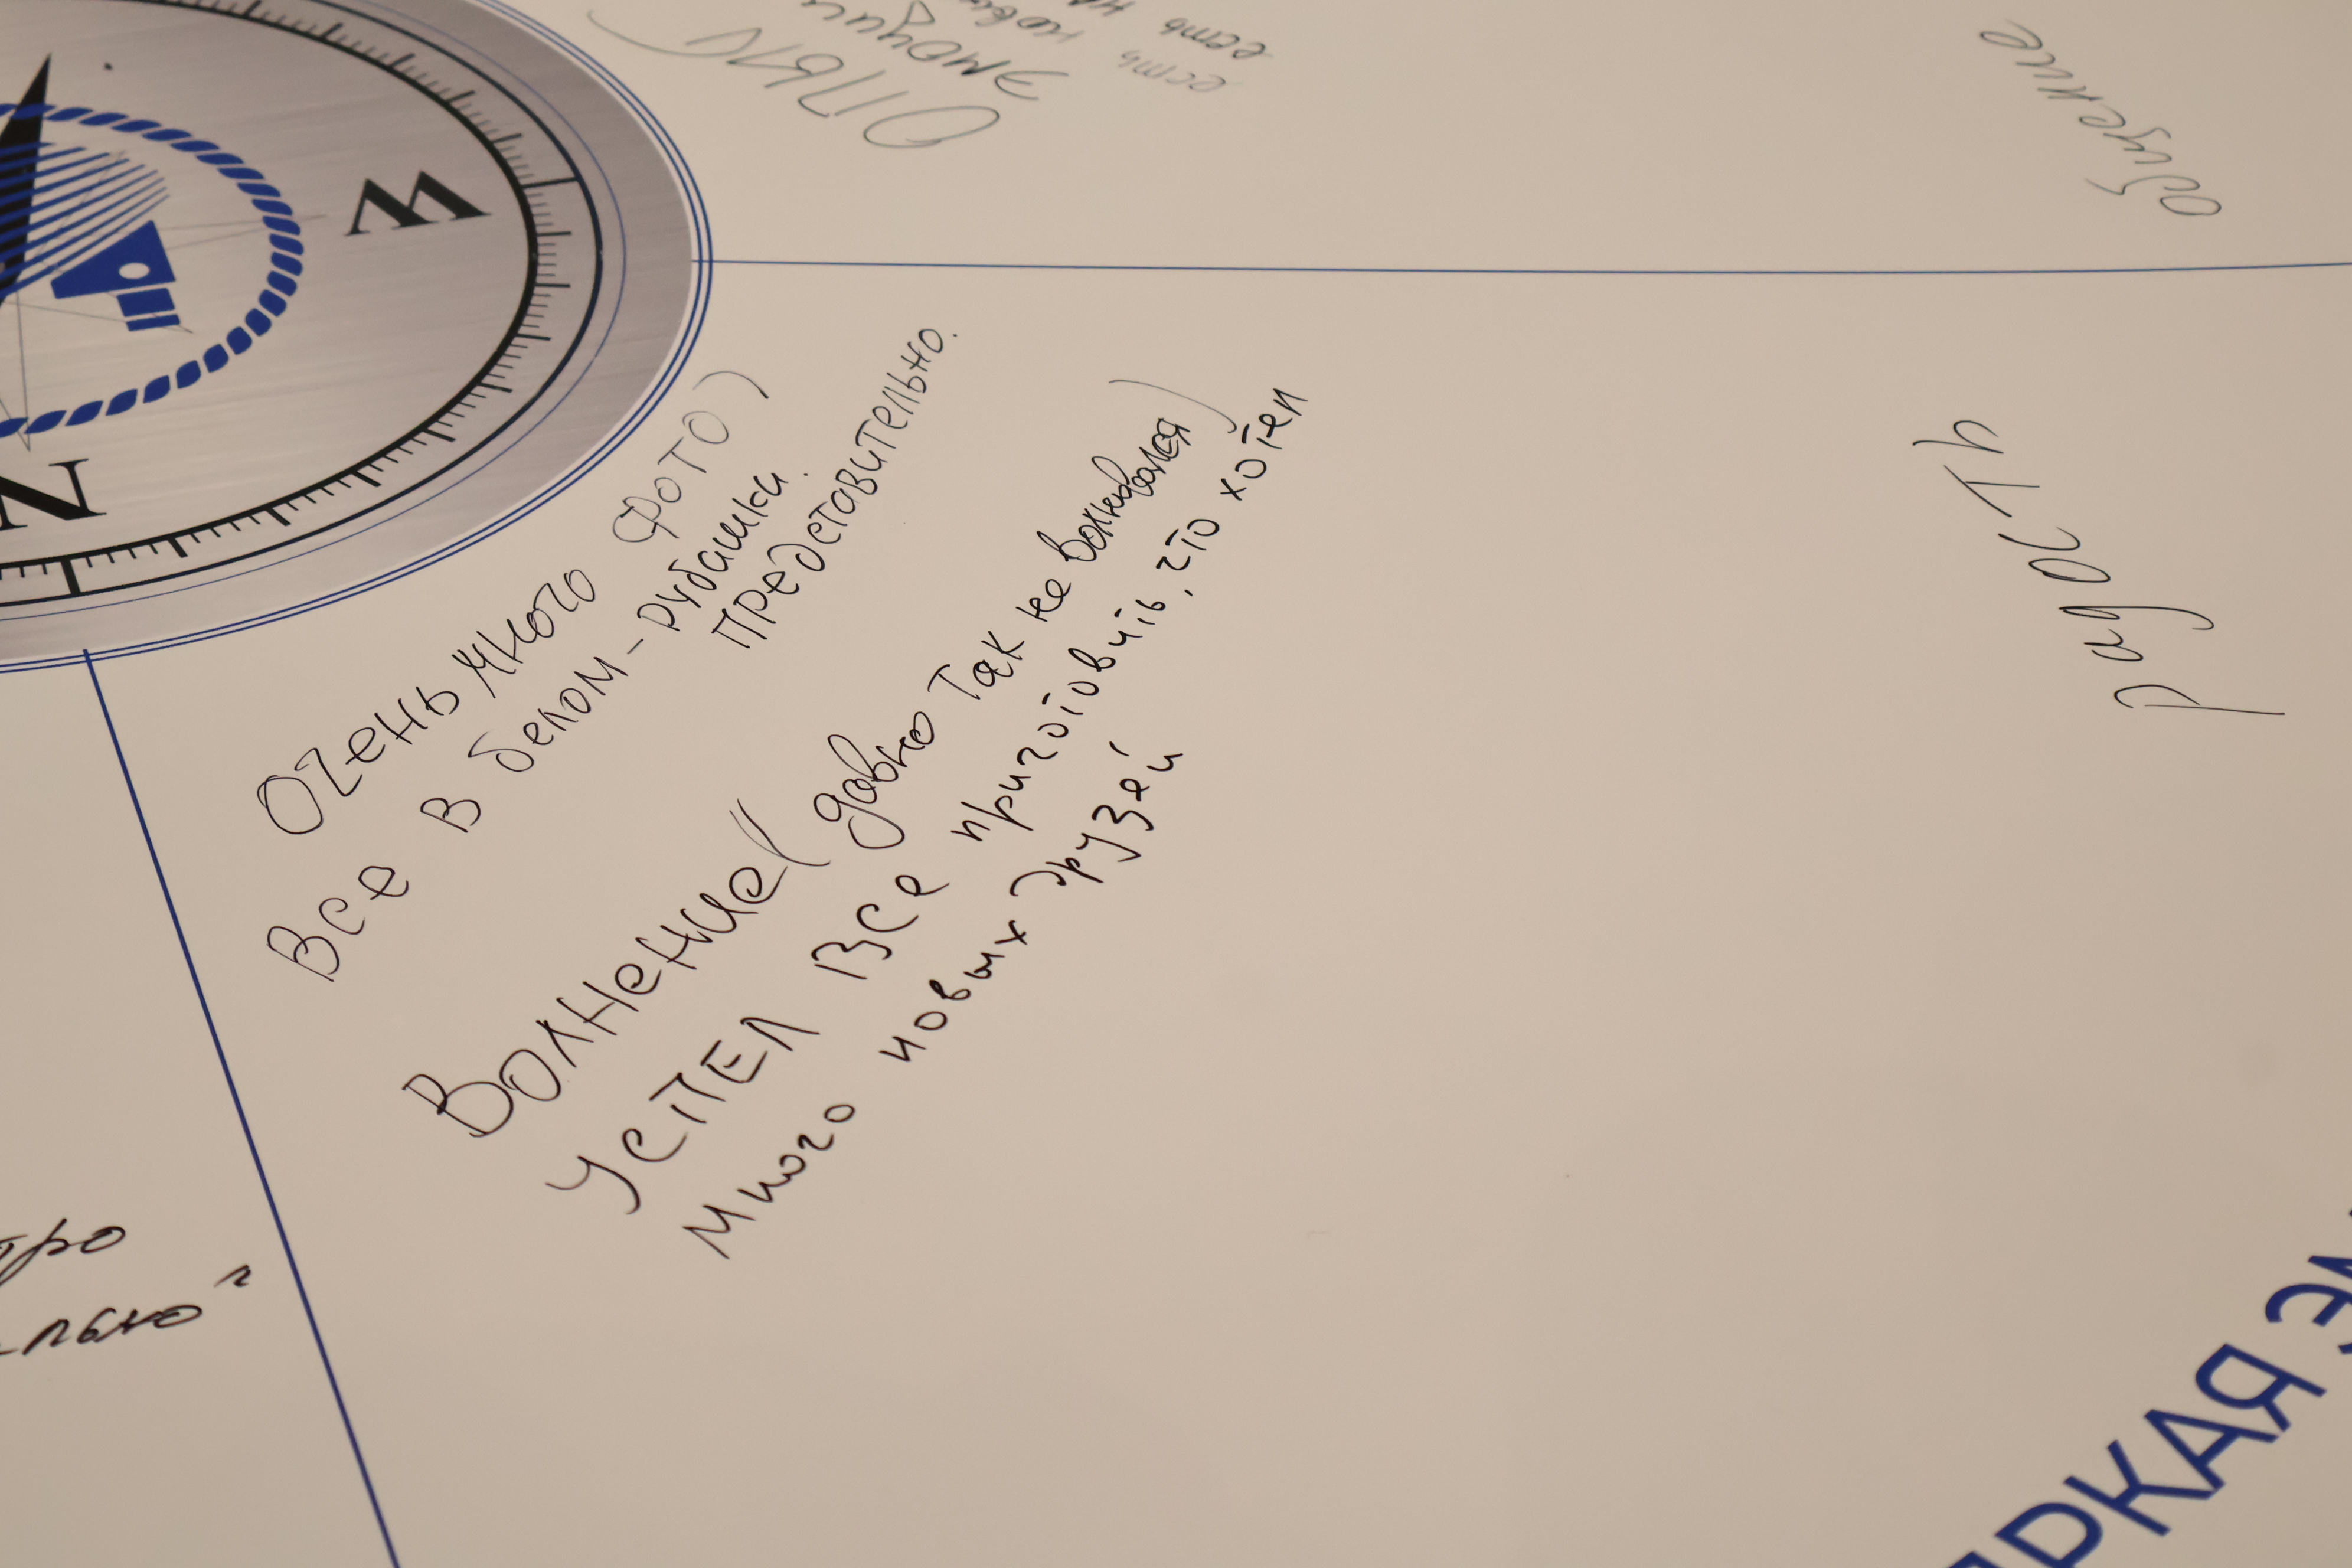 W
N
ОПЫТ
эмоции
есть
есть
общение
Очень много фото)
Все в белом - рубашки.
Представительно.
Волнение (давно так не волновался)
Успел все приготовить, что хотел
Много новых друзей
Радость
ЯРКАЯ